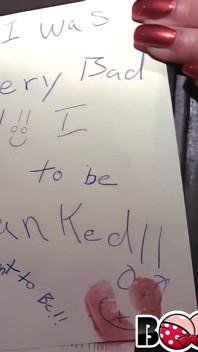 I was
ery Bad
!! I
to be
anked!!
nt to Be!!